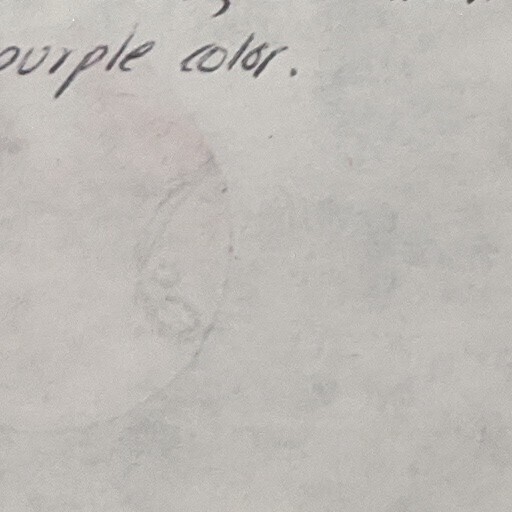 purple color.